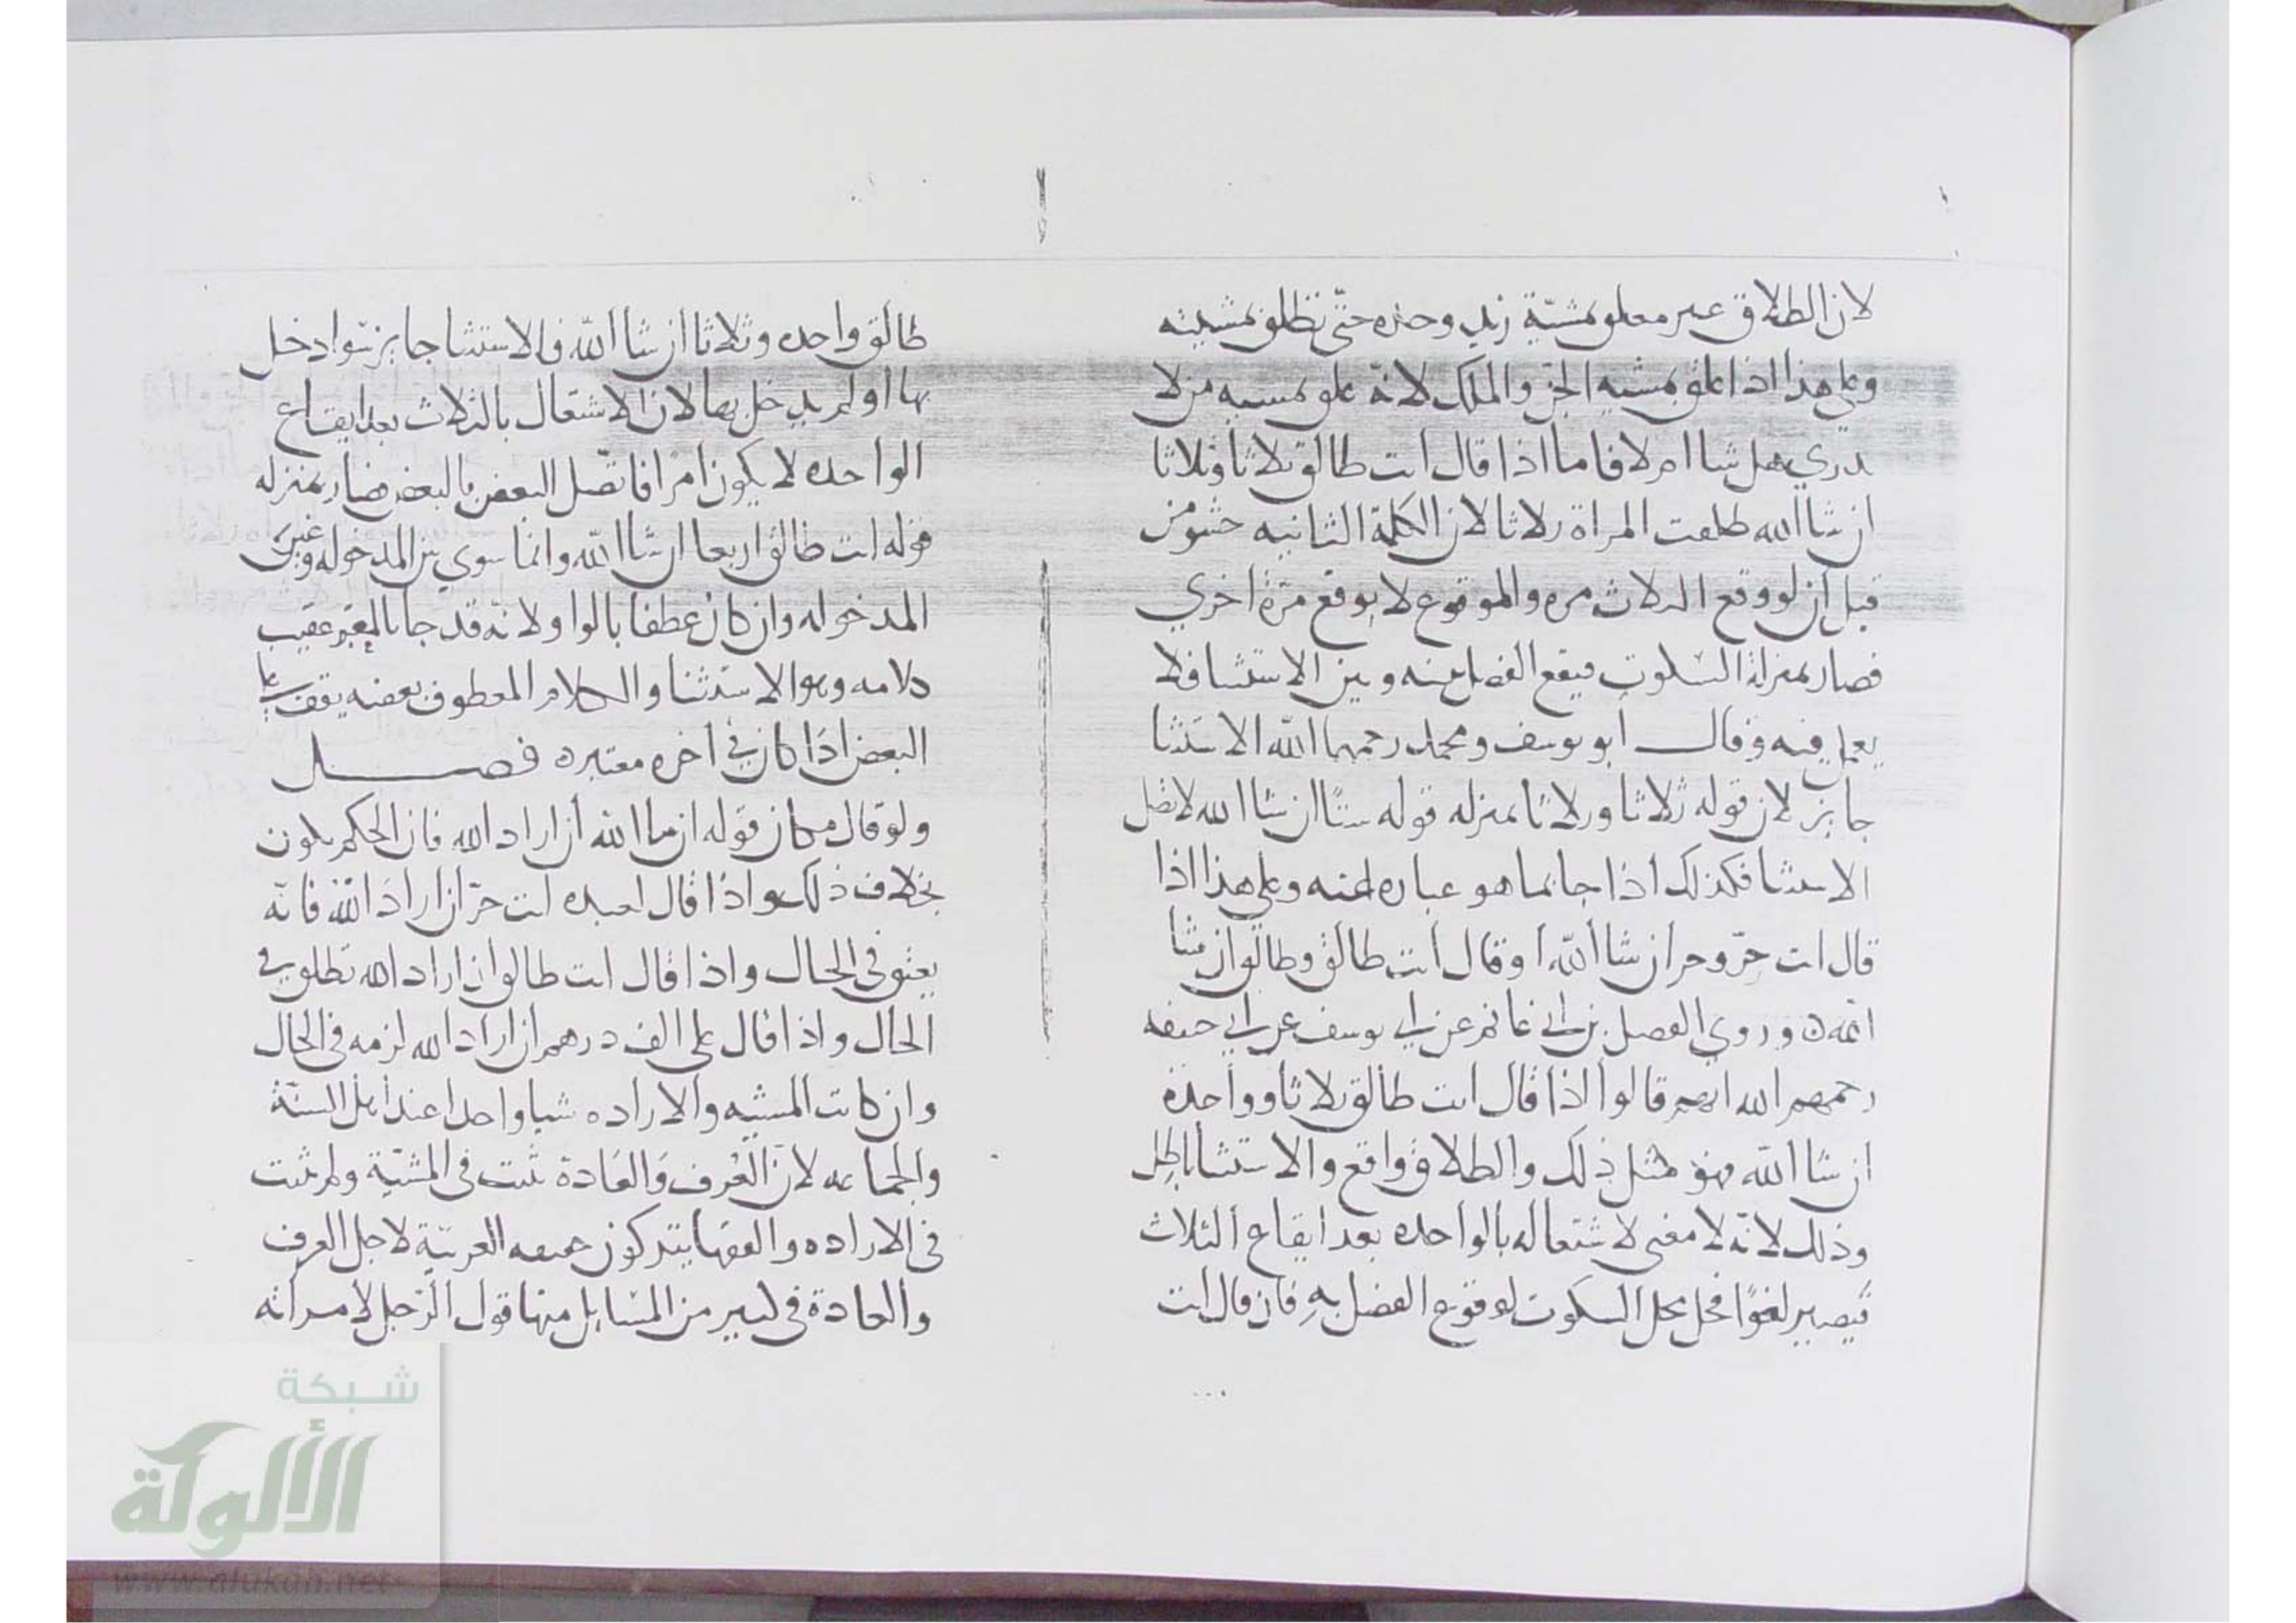 لان الطلاق غير معلق بمشية زيد وحده حتى تطلق بمشيته
وعلى هذا اذا علق بمشيه الجن والملك لانه علق بمشيه من لا
يدري هل شا ام لا فاما اذا قال انت طالق ثلاثا وثلاثا
ان شا الله طلقت المراة ثلاثا لان الكلمة الثانيه حشو من
قبل ان لو وقع الثلاث مره والموقوع لا يوقع مرة اخري
فصار بمنزلة السكوت فيقع الفصل بينه وبين الاستثنا فلا
يعمل فيه وقال ابو يوسف ومحمد رحمهما الله الاستثنا
جايز لان قوله ثلاثا وثلاثا بمنزله قوله ستا ان شا الله لاتصل
الاستثنا فكذلك اذا جا بما هو عباره عنه وعلى هذا اذا
قال انت حر وحر ان شا الله او قال انت طالق وطالق ان شا
الله وروي الفضل بن غانم عن ابي يوسف عن ابي حنيفه
رحمهم الله انهم قالوا اذا قال انت طالق ثلاثا وواحدة
ان شا الله فهو مثل ذلك والطلاق واقع والاستثنا باطل
وذلك لانه لا معنى لاشتغاله بالواحده بعد ايقاع الثلاث
فيصير لغوا فحل محل السكوت لوقوع الفصل به فان قال انت
طالق واحده وثلاثا ان شا الله فالاستثنا جايز سوا دخل
بها او لم يدخل بها لان الاشتغال بالثلاث بعد ايقاع
الواحده لا يكون امرا فاتصل البعض بالبعض فصار بمنزله
قوله انت طالق اربعا ان شا الله وانما سوي بين المدخوله وغير
المدخوله وان كان عطفا بالواو لانه قد جا بالمغير عقيب
كلامه وهو الاستثنا والكلام المعطوف بعضه يقف على
البعض اذا كان في اخره معتبره فصل
ولو قال مكان قوله ان شا الله ان اراد الله فان الحكم يكون
بخلاف ذلك واذا قال لعبده انت حر ان اراد الله فانه
يعتق فى الحال واذا قال انت طالق ان اراد الله تطلق في
الحال واذا قال على الف درهم ان اراد الله لزمه فى الحال
وان كانت المشيه والاراده شيا واحدا عند اهل السنة
والجماعه لان العرف والعادة ثبت فى المشية ولم يثبت
فى الاراده والفقها يتركون حقيقه العربية لاجل العرف
والعادة فى كثير من المسايل منها قول الرجل لامراته
شبكة
الألوكة
www.alukah.net